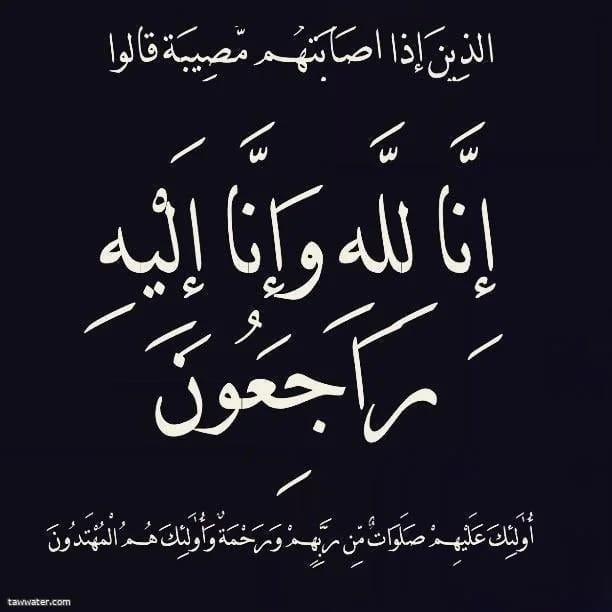 الذِينَ إِذا اصَابَتهُم مّصِيبَة قالوا
إِنَّا لِلَّهِ وَإِنَّا إِلَيْهِ
رَاجِعُونَ
أُوْلَٰئِكَ عَلَيْهِمْ صَلَوَاتٌ مِّن رَبِّهِمْ وَرَحْمَةٌ وَأُوْلَٰئِكَ هُمُ الْمُهْتَدُونَ
tawwater.com